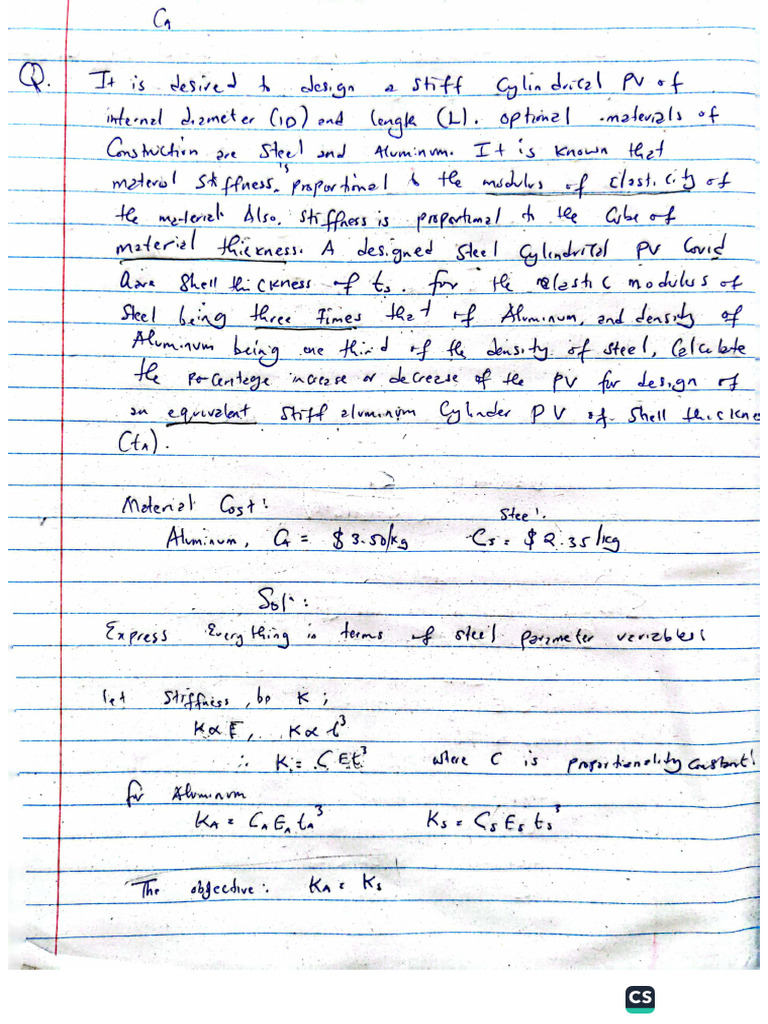 C₁
Q. It is desired to design a stiff Cylindrical PV of
internal diameter (ID) and length (L). optional materials of
Construction are Steel and Aluminum. It is known that
material stiffness is proportional to the modulus of elasticity of
the material. Also, stiffness is proportional to the Cube of
material thickness. A designed Steel Cylindrical PV Could
have Shell thickness of ts. for the elastic modulus of
Steel being three times that of Aluminum, and density of
Aluminum being one third of the density of steel, Calculate
the percentage increase or decrease of the PV for design of
an equivalent stiff aluminum Cylinder PV of shell thickne
(tA).
Material Cost:
Steel:
Aluminum, CA = $ 3.50/kg Cs = $ 2.35/kg
Soln:
Express Everything in terms of steel parameter variables:
let Stiffness, be K;
K∝E, K∝t³
∴ K = C Et³ where C is proportionality constant!
for Aluminum
KA = CA EA tA³ Ks = Cs Es ts³
The objective: KA = Ks
CS